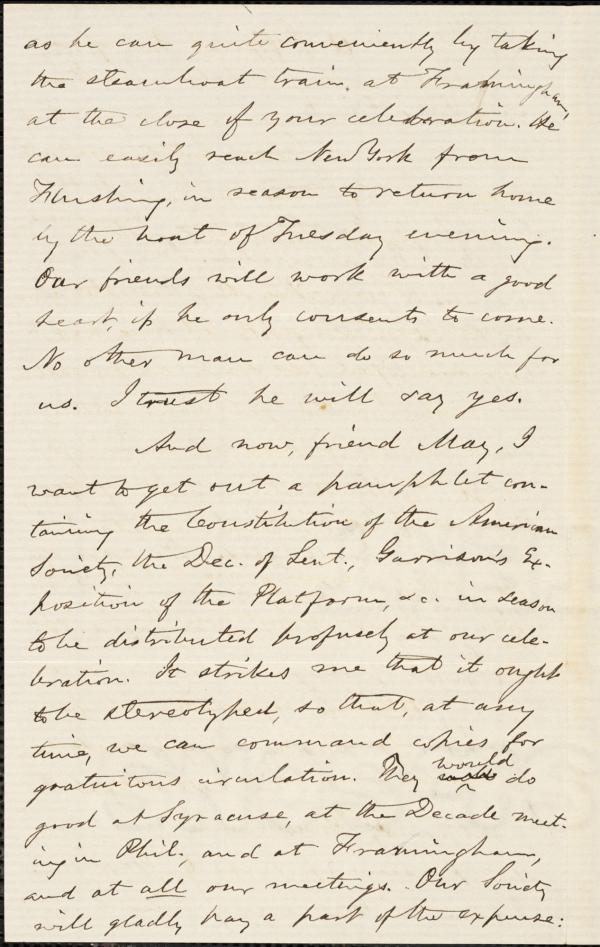 as he can quite conveniently by taking
the steamboat train, at Framingham,
at the close of your celebration. He
can easily reach New York from
Flushing, in season to return home
by the boat of Tuesday evening.
Our friends will work with a good
heart, if he only consents to come.
No other man can do so much for
us. I trust he will say yes.
And now, friend May, I
want to get out a pamphlet con-
taining the Constitution of the American
Society, the Dec. of Sent., Garrison's Ex-
position of the Platform, &c. in season
to be distributed profusely at our cele-
bration. It strikes me that it ought
to be stereotyped, so that, at any
time, we can command copies for
gratuitous circulation. They would do
good at Syracuse, at the Decade meet-
ing in Phil., and at Framingham,
and at all our meetings. Our Society
will gladly pay a part of the expense: